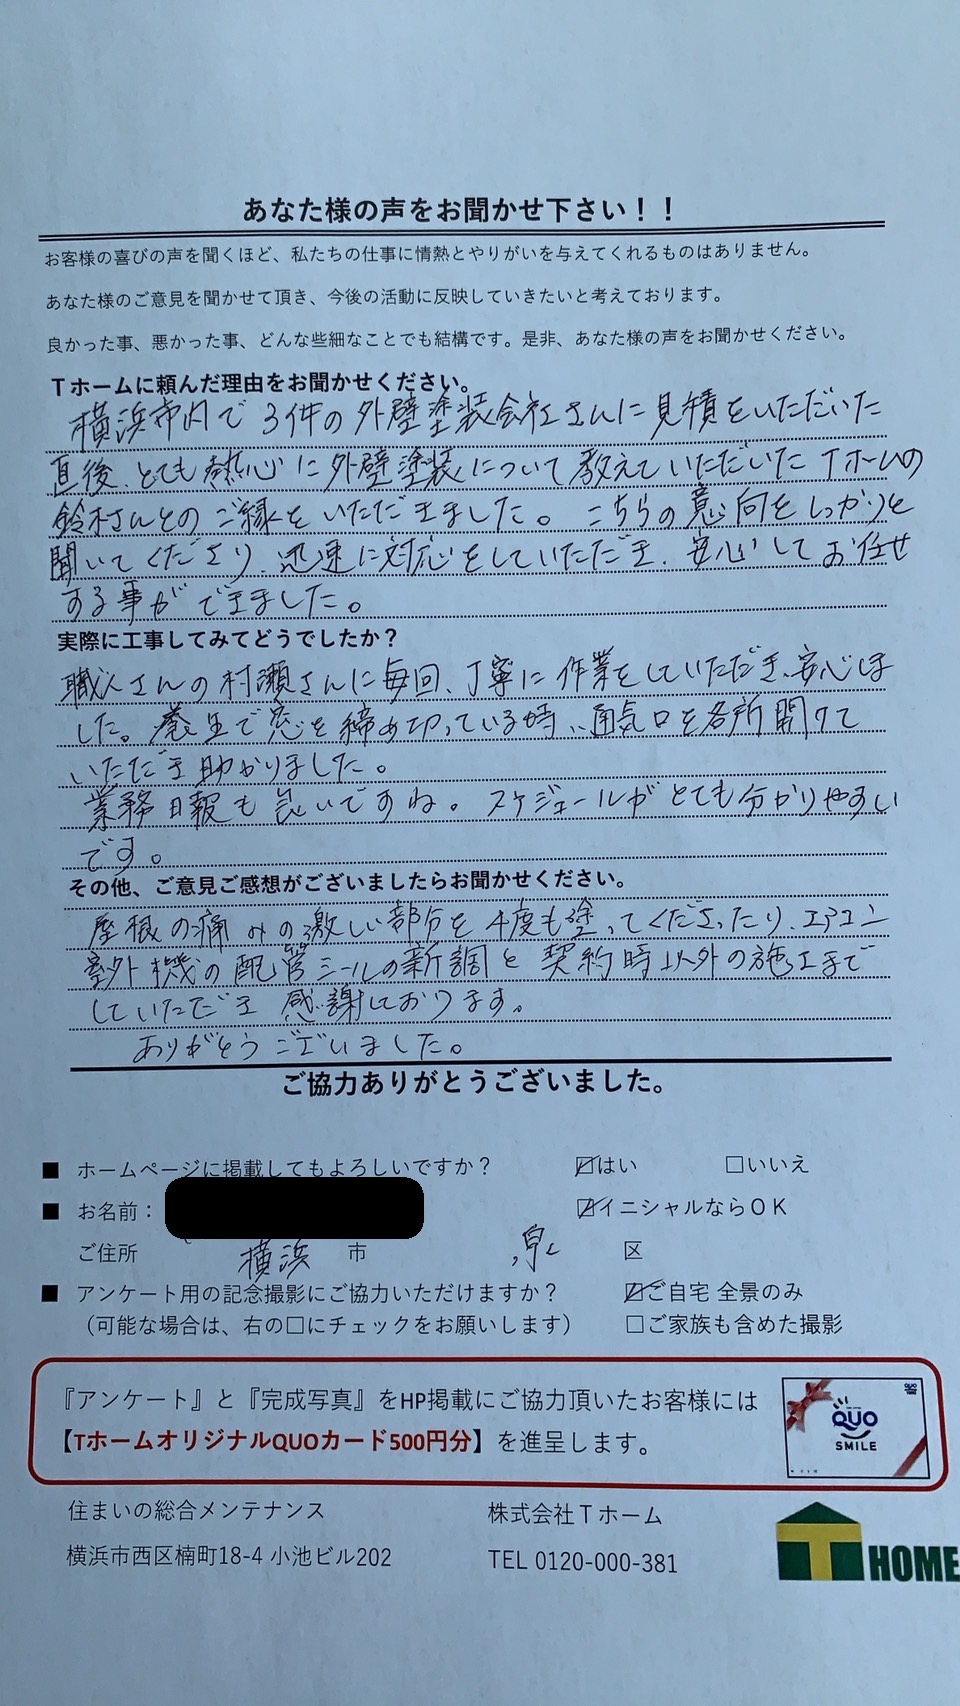 あなた様の声をお聞かせ下さい！！
お客様の喜びの声を聞くほど、私たちの仕事に情熱とやりがいを与えてくれるものはありません。
あなた様のご意見を聞かせて頂き、今後の活動に反映していきたいと考えております。
良かった事、悪かった事、どんな些細なことでも結構です。是非、あなた様の声をお聞かせください。
Ｔホームに頼んだ理由をお聞かせください。
横浜市内で3件の外壁塗装会社さんに見積をいただいた
直後、とても熱心に外壁塗装について教えていただいたTホームの
鈴木さんとのご縁をいただきました。こちらの意向をしっかりと
聞いてくださり、迅速に対応をしていただき、安心してお任せ
する事ができました。
実際に工事してみてどうでしたか？
職人さんの村瀬さんに毎回、丁寧に作業をしていただき、安心しま
した。養生で窓を締め切っている時、通気口を各所開けて
いただき助かりました。
業務日報も良いですね。スケジュールがとても分かりやすい
です。
その他、ご意見ご感想がございましたらお聞かせください。
屋根の痛みの激しい部分を4度も塗ってくださったり、エアコン
室外機の配管シールの新調と契約時以外の施工まで
していただき感謝しております。
ありがとうございました。
ご協力ありがとうございました。
■ ホームページに掲載してもよろしいですか？ ☑はい □いいえ
■ お名前： ☑イニシャルならＯＫ
ご住所 横浜 市 泉 区
■ アンケート用の記念撮影にご協力いただけますか？ ☑ご自宅 全景のみ
（可能な場合は、右の□にチェックをお願いします） □ご家族も含めた撮影
『アンケート』と『完成写真』をHP掲載にご協力頂いたお客様には
【TホームオリジナルQUOカード500円分】を進呈します。
QUO
SMILE
住まいの総合メンテナンス 株式会社Ｔホーム
横浜市西区楠町18-4 小池ビル202 TEL 0120-000-381
T HOME